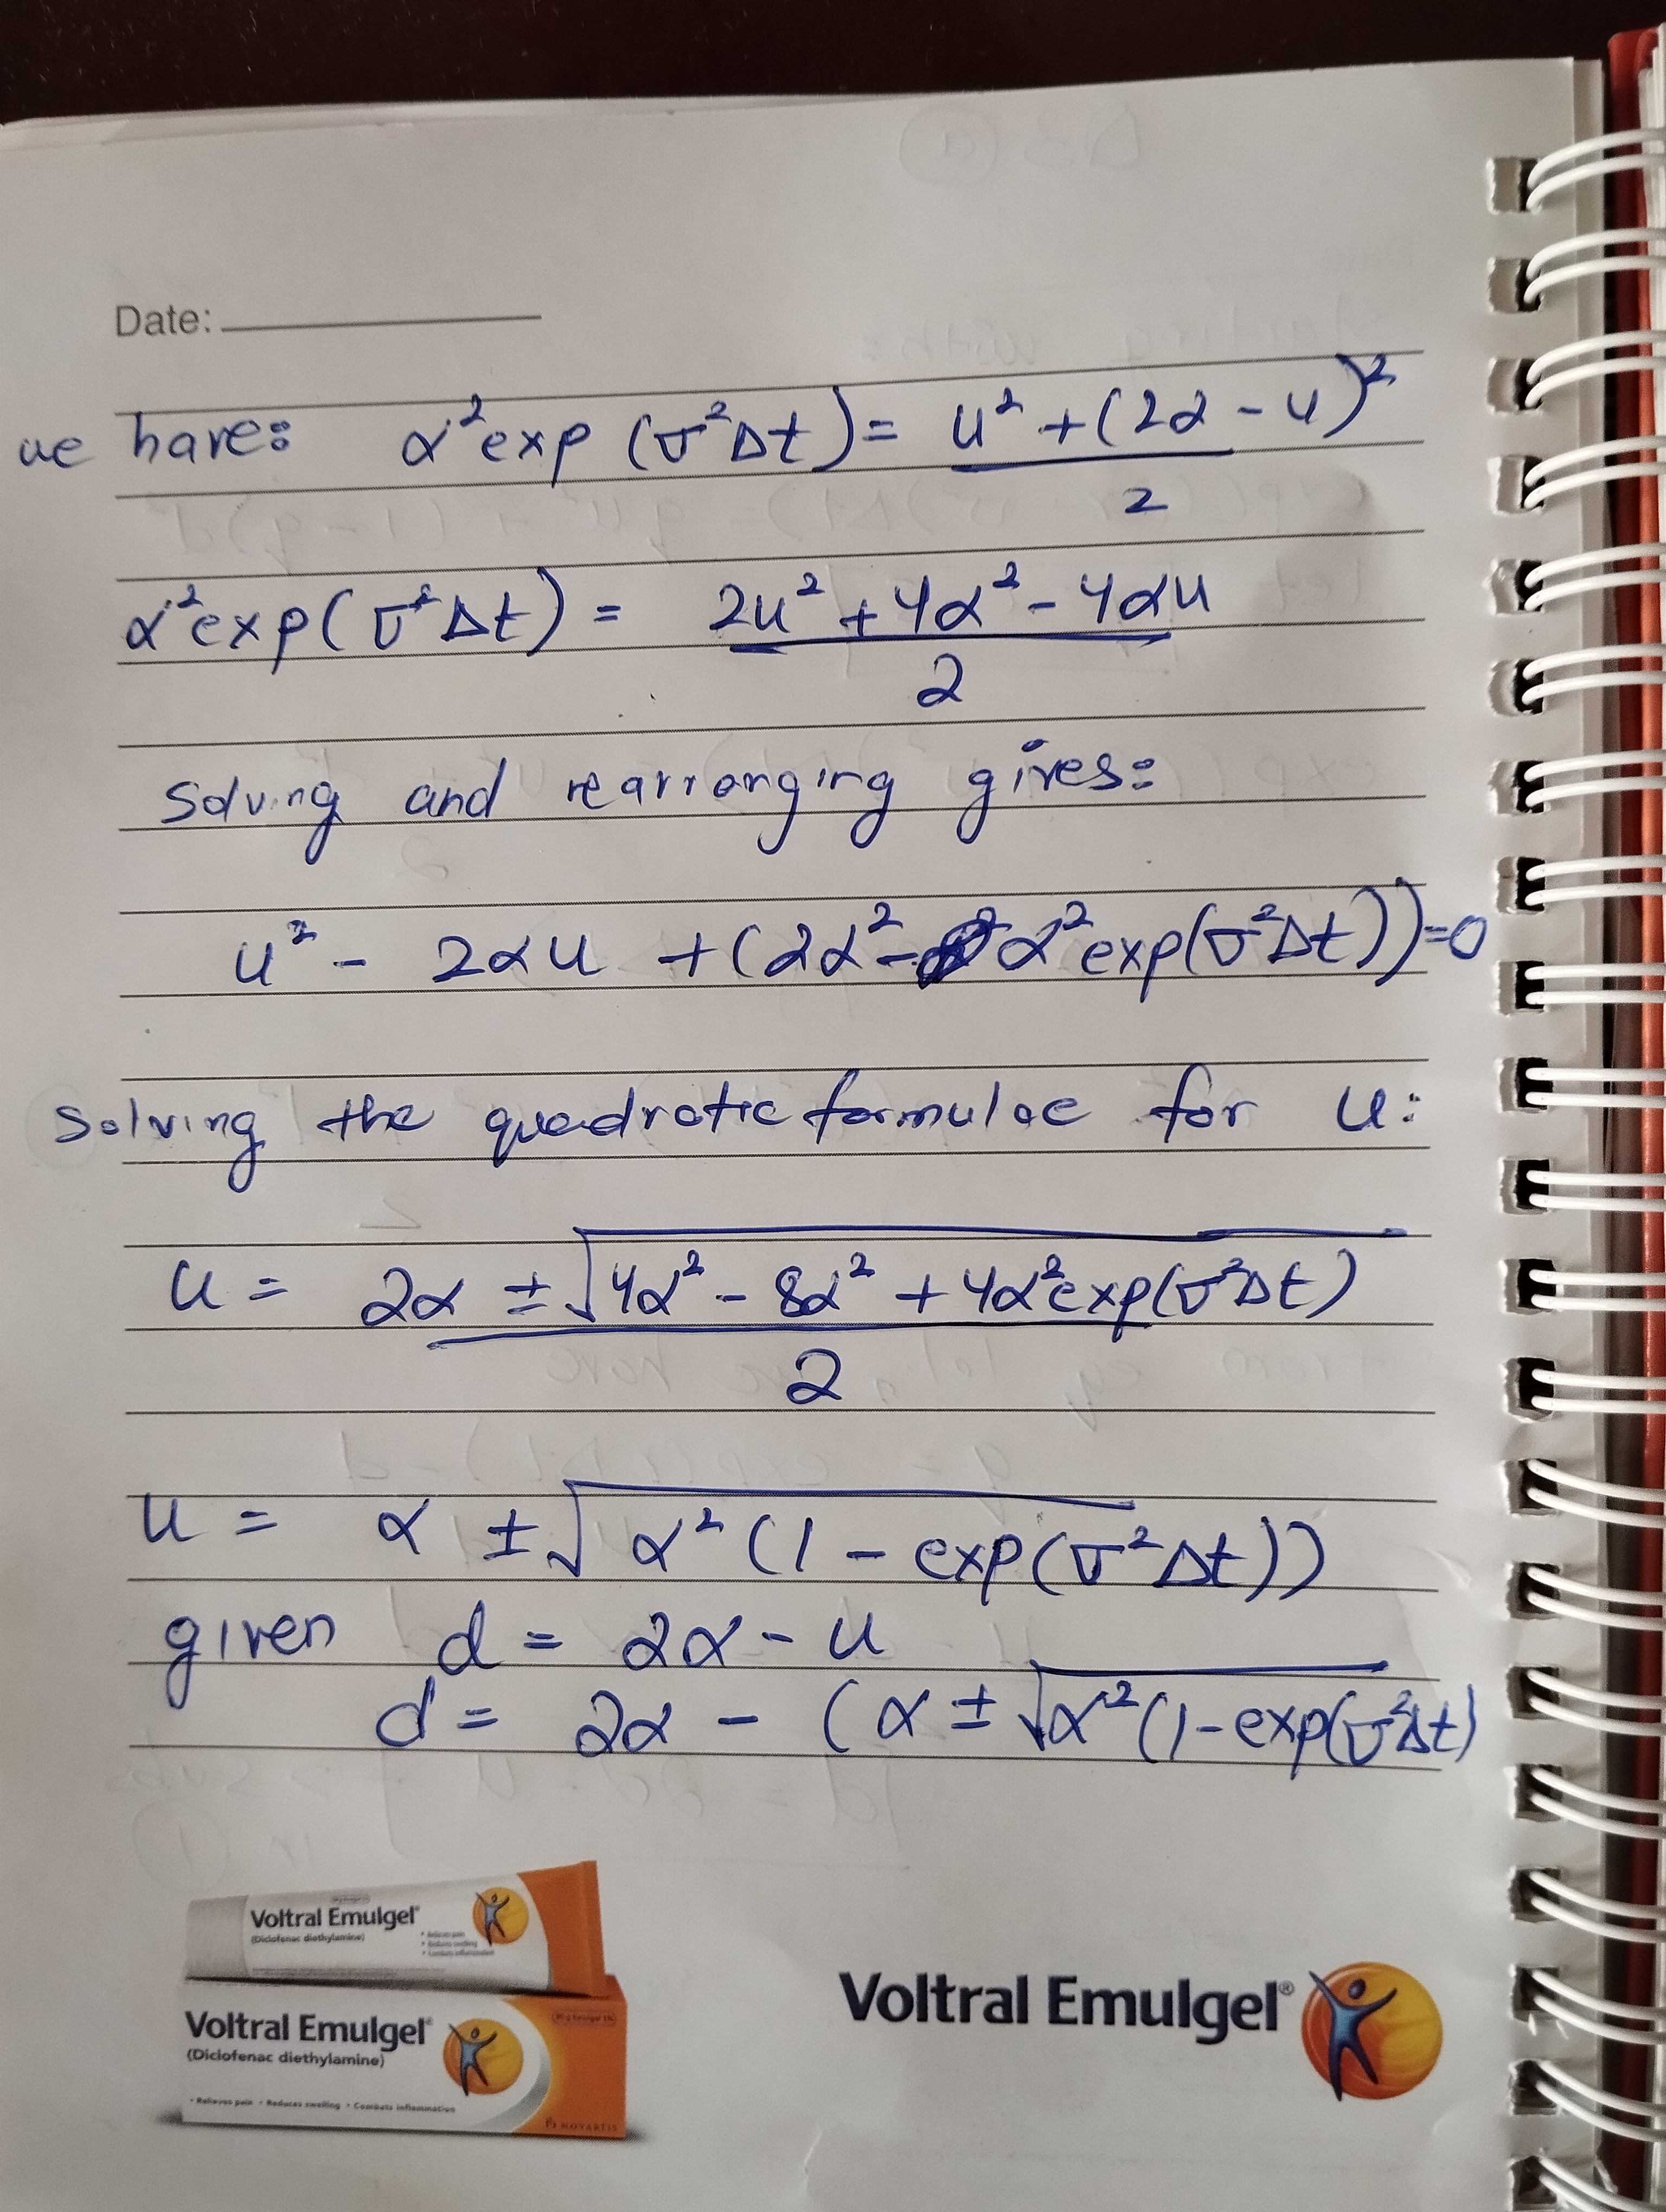 Date:
we have: α² exp (σ²Δt) = u² + (2α - u)² / 2
α² exp(σ²Δt) = 2u² + 4α² - 4αu / 2
Solving and rearranging gives:
u² - 2αu + (2α² - α² exp(σ²Δt)) = 0
Solving the quadratic formulae for u:
u = 2α ± √4α² - 8α² + 4α² exp(σ²Δt) / 2
u = α ± √α² (1 - exp(σ²Δt))
given d = 2α - u
d = 2α - (α ± √α² (1 - exp(σ²Δt)
Voltral Emulgel
(Diclofenac diethylamine)
Voltral Emulgel
(Diclofenac diethylamine)
• Relieves pain • Reduces swelling • Combats inflammation
NOVARTIS
Voltral Emulgel®